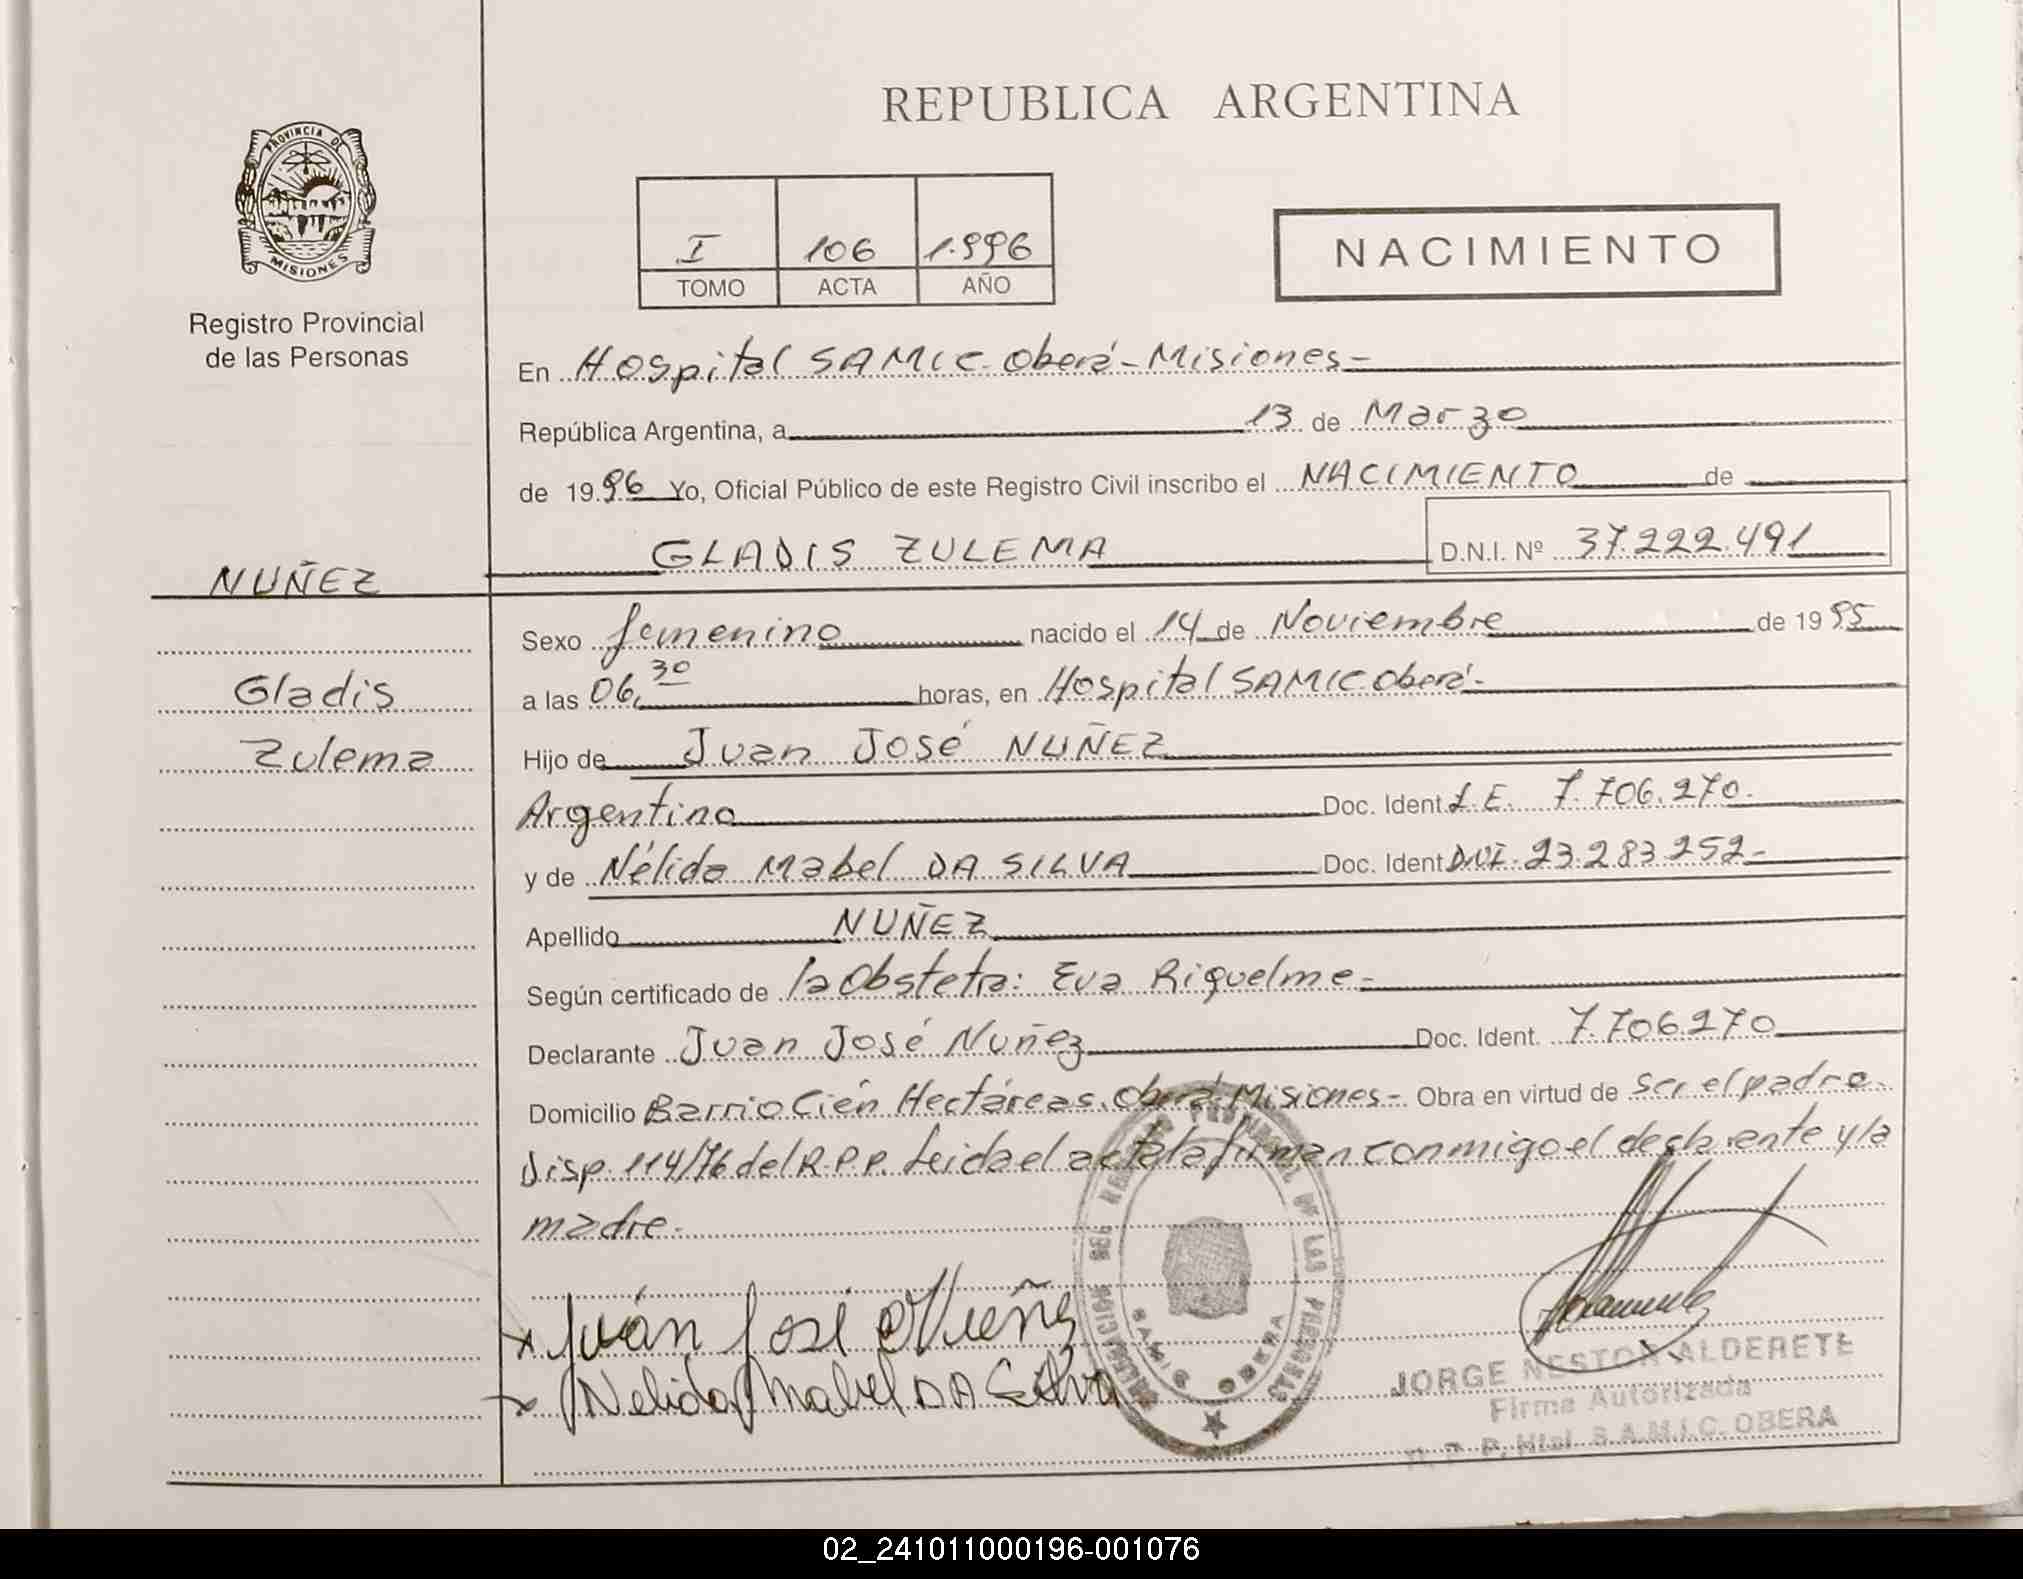 REPUBLICA ARGENTINA
PROVINCIA DE
MISIONES
Registro Provincial
de las Personas
I 106 1.996
TOMO ACTA AÑO
NACIMIENTO
En Hospital SAMIC-Oberá-Misiones-
República Argentina, a 13 de Marzo
de 1996 Yo, Oficial Público de este Registro Civil inscribo el NACIMIENTO de
GLADIS ZULEMA D.N.I. Nº 37.222.491
NUÑEZ
Gladis
Zulema
Sexo femenino nacido el 14 de Noviembre de 1995
a las 06,30 horas, en Hospital SAMIC Oberá-
Hijo de Juan José NUÑEZ
Argentino Doc. Ident L.E. 7.706.270.
y de Nélida Mabel DA SILVA Doc. Ident D.N.I. 23.283.252-
Apellido NUÑEZ
Según certificado de la Obstetra: Eva Riquelme-
Declarante Juan José Nuñez Doc. Ident. 7.706.270
Domicilio Barrio Cién Hectáreas. Oberá Misiones-. Obra en virtud de ser el padre.
Disp. 114/76 del R.P.P. Leida el acta la firman conmigo el declarente y la
madre.-
x Juán José Nuñez
x Nelida Mabel DA Silva
DELEGACION DEL REGISTRO PROVINCIAL DE LAS PERSONAS
SAMIC OBERA
JORGE NESTOR ALDERETE
Firma Autorizada
R. P. P. Htal. S.A.M.I.C. OBERA
02_241011000196-001076